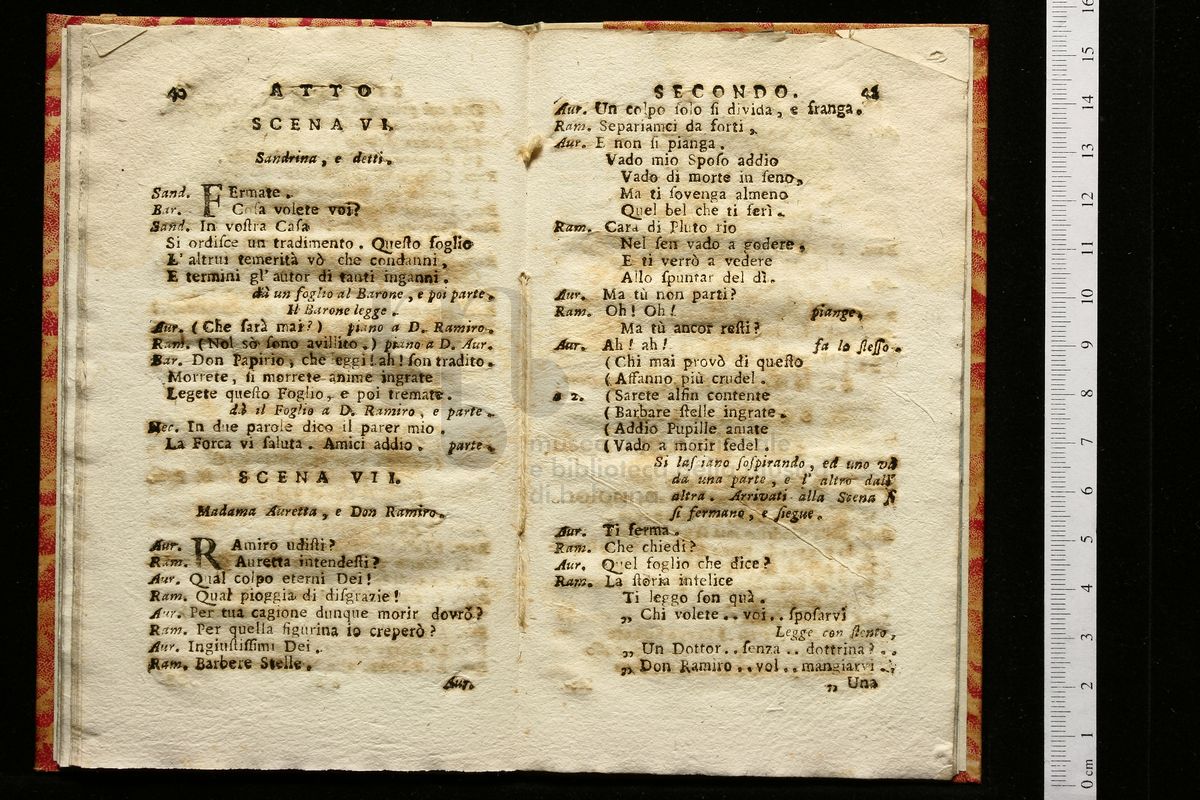 40 ATTO
SCENA VI.
Sandrina, e detti.
Sand. FErmate.
Bar. Cosa volete voi?
Sand. In vostra Casa
Si ordisce un tradimento. Questo foglio
L' altrui temerità vò che condanni,
E termini gl' autor di tanti inganni.
dà un foglio al Barone, e poi parte.
Il Barone legge.
Aur. (Che sarà mai?) piano a D. Ramiro.
Ram. (Nol sò sono avillito.) piano a D. Aur.
Bar. Don Papirio, che leggi! ah! son tradito.
Morrete, sì morrete anime ingrate
Legete questo Foglio, e poi tremate.
dà il Foglio a D. Ramiro, e parte.
Mec. In due parole dico il parer mio.
La Forca vi saluta. Amici addio. parte.
SCENA VII.
Madama Auretta, e Don Ramiro.
Aur. RAmiro udisti?
Ram. Auretta intendesti?
Aur. Qual colpo eterni Dei!
Ram. Qual pioggia di disgrazie!
Aur. Per tua cagione dunque morir dovrò?
Ram. Per quella figurina io creperò?
Aur. Ingiustissimi Dei.
Ram. Barbere Stelle.
Aur.
SECONDO. 41
Aur. Un colpo solo si divida, e franga.
Ram. Separiamci da forti,
Aur. E non si pianga.
Vado mio Sposo addio
Vado di morte in seno,
Ma ti sovenga almeno
Quel bel che ti ferì.
Ram. Cara di Pluto rio
Nel sen vado a godere,
E ti verrò a vedere
Allo spuntar del dì.
Aur. Ma tù non parti?
Ram. Oh! Oh! piange,
Ma tù ancor resti?
Aur. Ah! ah! fa lo stesso.
(Chi mai provò di questo
(Affanno più crudel.
a 2. (Sarete alfin contente
(Barbare stelle ingrate.
(Addio Pupille amate
(Vado a morir fedel.
Si lasciano sospirando, ed uno và
da una parte, e l' altro dall'
altra. Arrivati alla Scena
si fermano, e siegue.
Aur. Ti ferma.
Ram. Che chiedi?
Aur. Quel foglio che dice?
Ram. La storia infelice
Ti leggo son quà.
„ Chi volete .. voi .. sposarvi
Legge con stento,
„ Un Dottor .. senza .. dottrina? ..
„ Don Ramiro .. vol .. mangiarvi ..
„ Una
museo
e biblioteca della musica
di bologna
0 cm
1
2
3
4
5
6
7
8
9
10
11
12
13
14
15
16